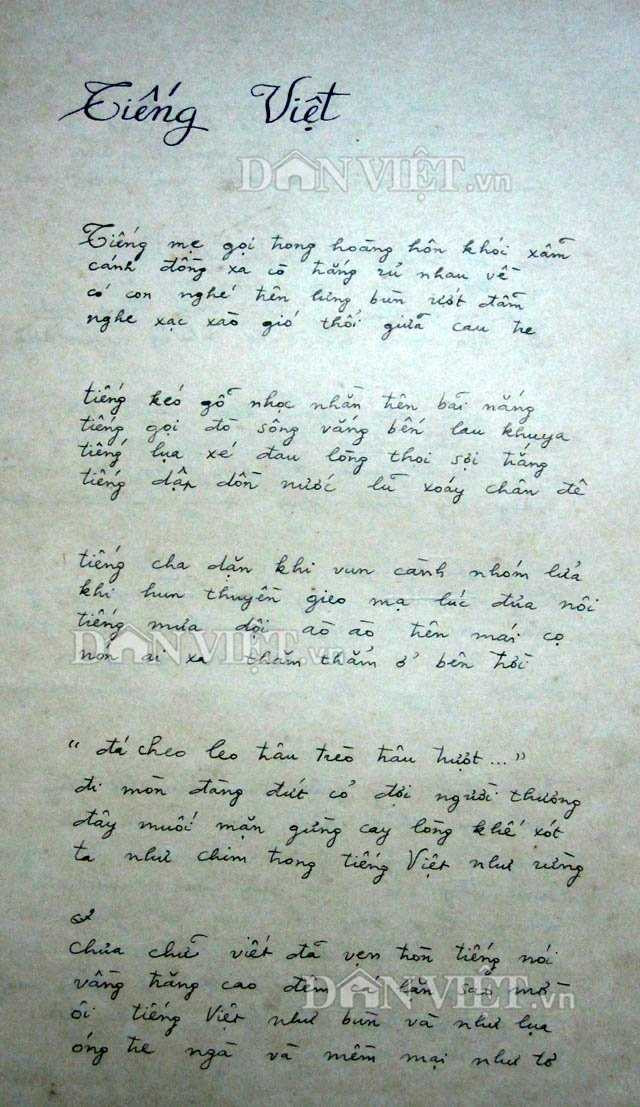 Tiếng Việt
DÂNVIỆT.vn
Tiếng mẹ gọi trong hoàng hôn khói xẫm
cánh đồng xa cò trắng rủ nhau về
có con nghé trên lưng bùn ướt đẫm
nghe xạc xào gió thổi giữa cau tre
tiếng kéo gỗ nhọc nhằn trên bãi nắng
tiếng gọi đò sông vắng bến lau khuya
tiếng lụa xé đau lòng thoi sợi trắng
tiếng dập dồn nước lũ xoáy chân đê
tiếng cha dặn khi vun cành nhóm lửa
khi hun thuyền gieo mạ lúc đưa nôi
tiếng mưa dội ào ào trên mái cọ
DÂNVIỆT.vn
non ai xa thăm thẳm ở bên trời
"đá cheo leo trâu trèo trâu trượt..."
đi mòn đàng đứt cỏ đợi người thương
đây muối mặn gừng cay lòng khế xót
ta như chim trong tiếng Việt như rừng
chưa chữ viết đã vẹn tròn tiếng nói
vầng trăng cao đêm cá lặn sao mờ
DÂNVIỆT.vn
ôi tiếng Việt như bùn và như lụa
óng tre ngà và mềm mại như tơ